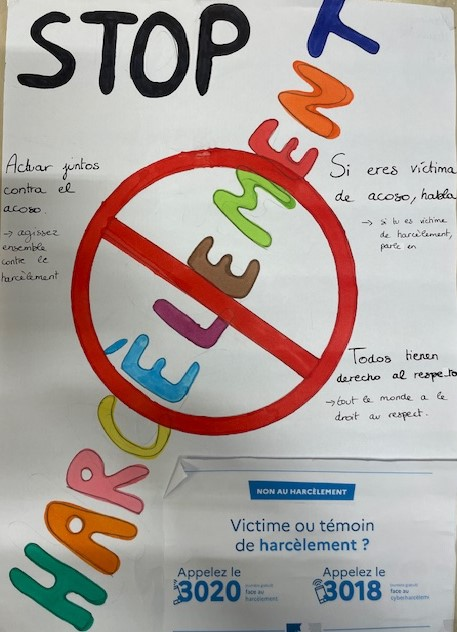 STOP
HARCÈLEMENT
Actuar juntos
contra el
acoso.
→ agissez
ensemble
contre le
harcèlement
Si eres víctima
de acoso, habla
→ si tu es victime
de harcèlement,
parle en
Todos tienen
derecho al respeto
→ tout le monde a le
droit au respect.
NON AU HARCÈLEMENT
Victime ou témoin
de harcèlement ?
Appelez le
3020
numéro gratuit
face au
harcèlement
Appelez le
3018
numéro gratuit
face au
cyberharcèlement